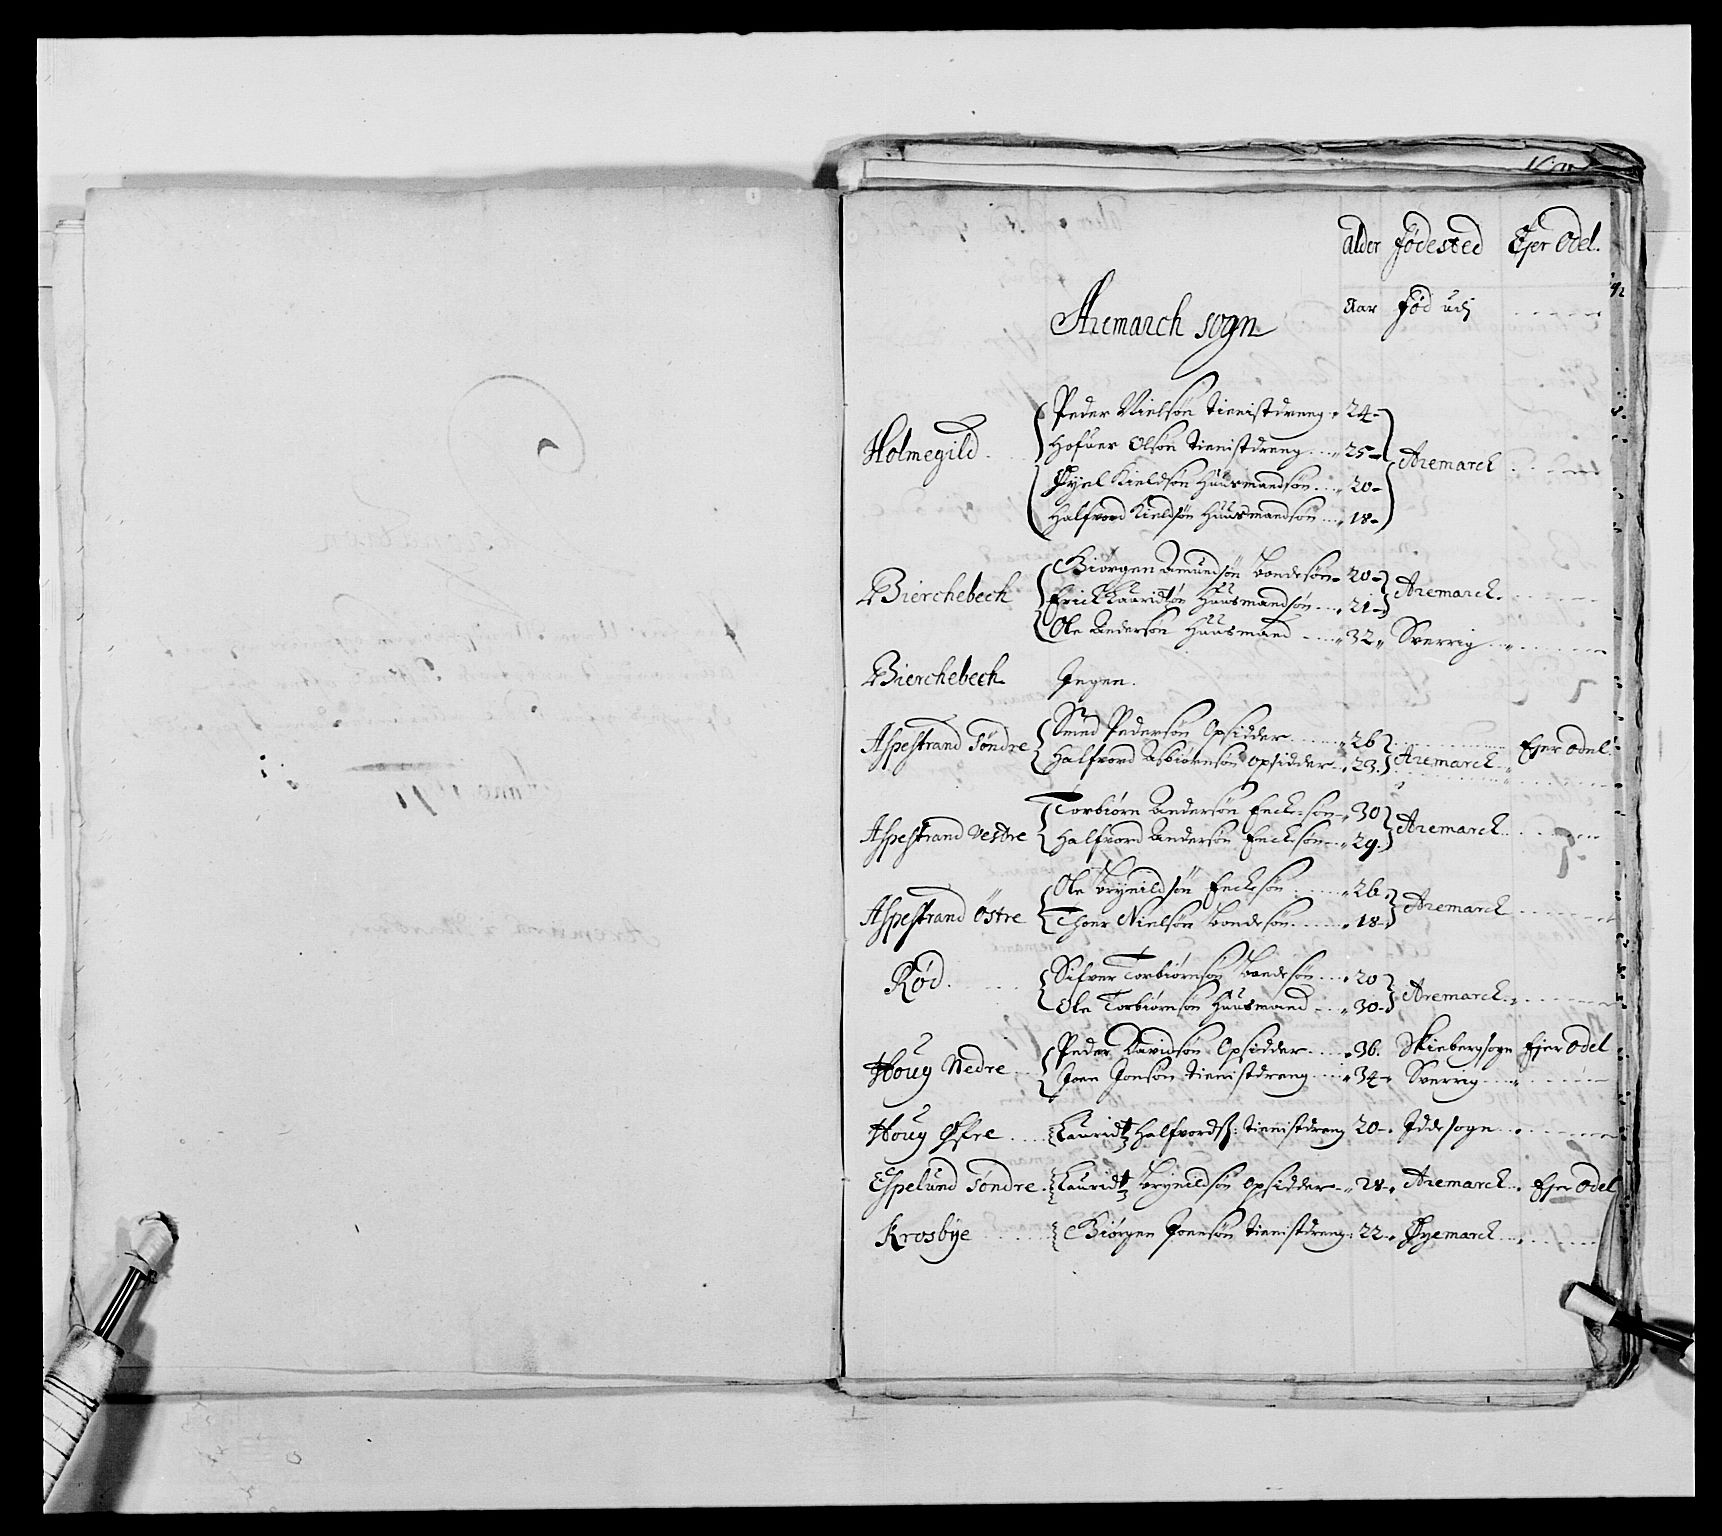 alder fødested Ejer Odel.
Aremarch sogn
Aar Fød udj
Holmegild
Peder Nielsøn tienistdreng 24
Hofuer Olsøn tienistdreng 25 Aremarck
Øyel Kieldsøn Huusmandsøn 20
Halfvord Kieldsøn Huusmandsøn 18
Bierchebech
Biørgen Amundsøn bondesøn 20 Aremarck
Erick Lauridsøn Huusmandsøn 21
Ole Andersøn Huusmand 32 Sverrig
Bierchebech Ingen.
Aspestrand Søndre
Smed Pedersøn Opsidder 26 Ejer Odel
Halfvord Asbiørnsøn opsidder 23 Aremarck
Aspestrand Vestre
Torbiørn Andersøn Enckesøn 30 Aremarck
Halfvord Andersøn Enckesøn 29
Aspestrand Østre
Ole Brynildsøn Enckesøn 26 Aremarck
Thoer Nielsøn bondesøn 18
Rød
Sifver Torbiørnsøn bondesøn 20
Ole Torbiørnsøn Huusmand 30 Aremarck
Houg Nedre
Peder Davidsøn Opsidder 36. Skiebergsogn Ejer Odel
Joen Jonsøn tienistdreng 34 Sverrig
Houg Øfre Lauridtz Halfvords: tienistdreng 20 Iddesogn
Espelund Søndre Lauridtz Brynildsøn opsidder 28 Aremarck Ejer Odel
Krosbye Biørgen Joensøn tienistdreng 22 Øyemarck